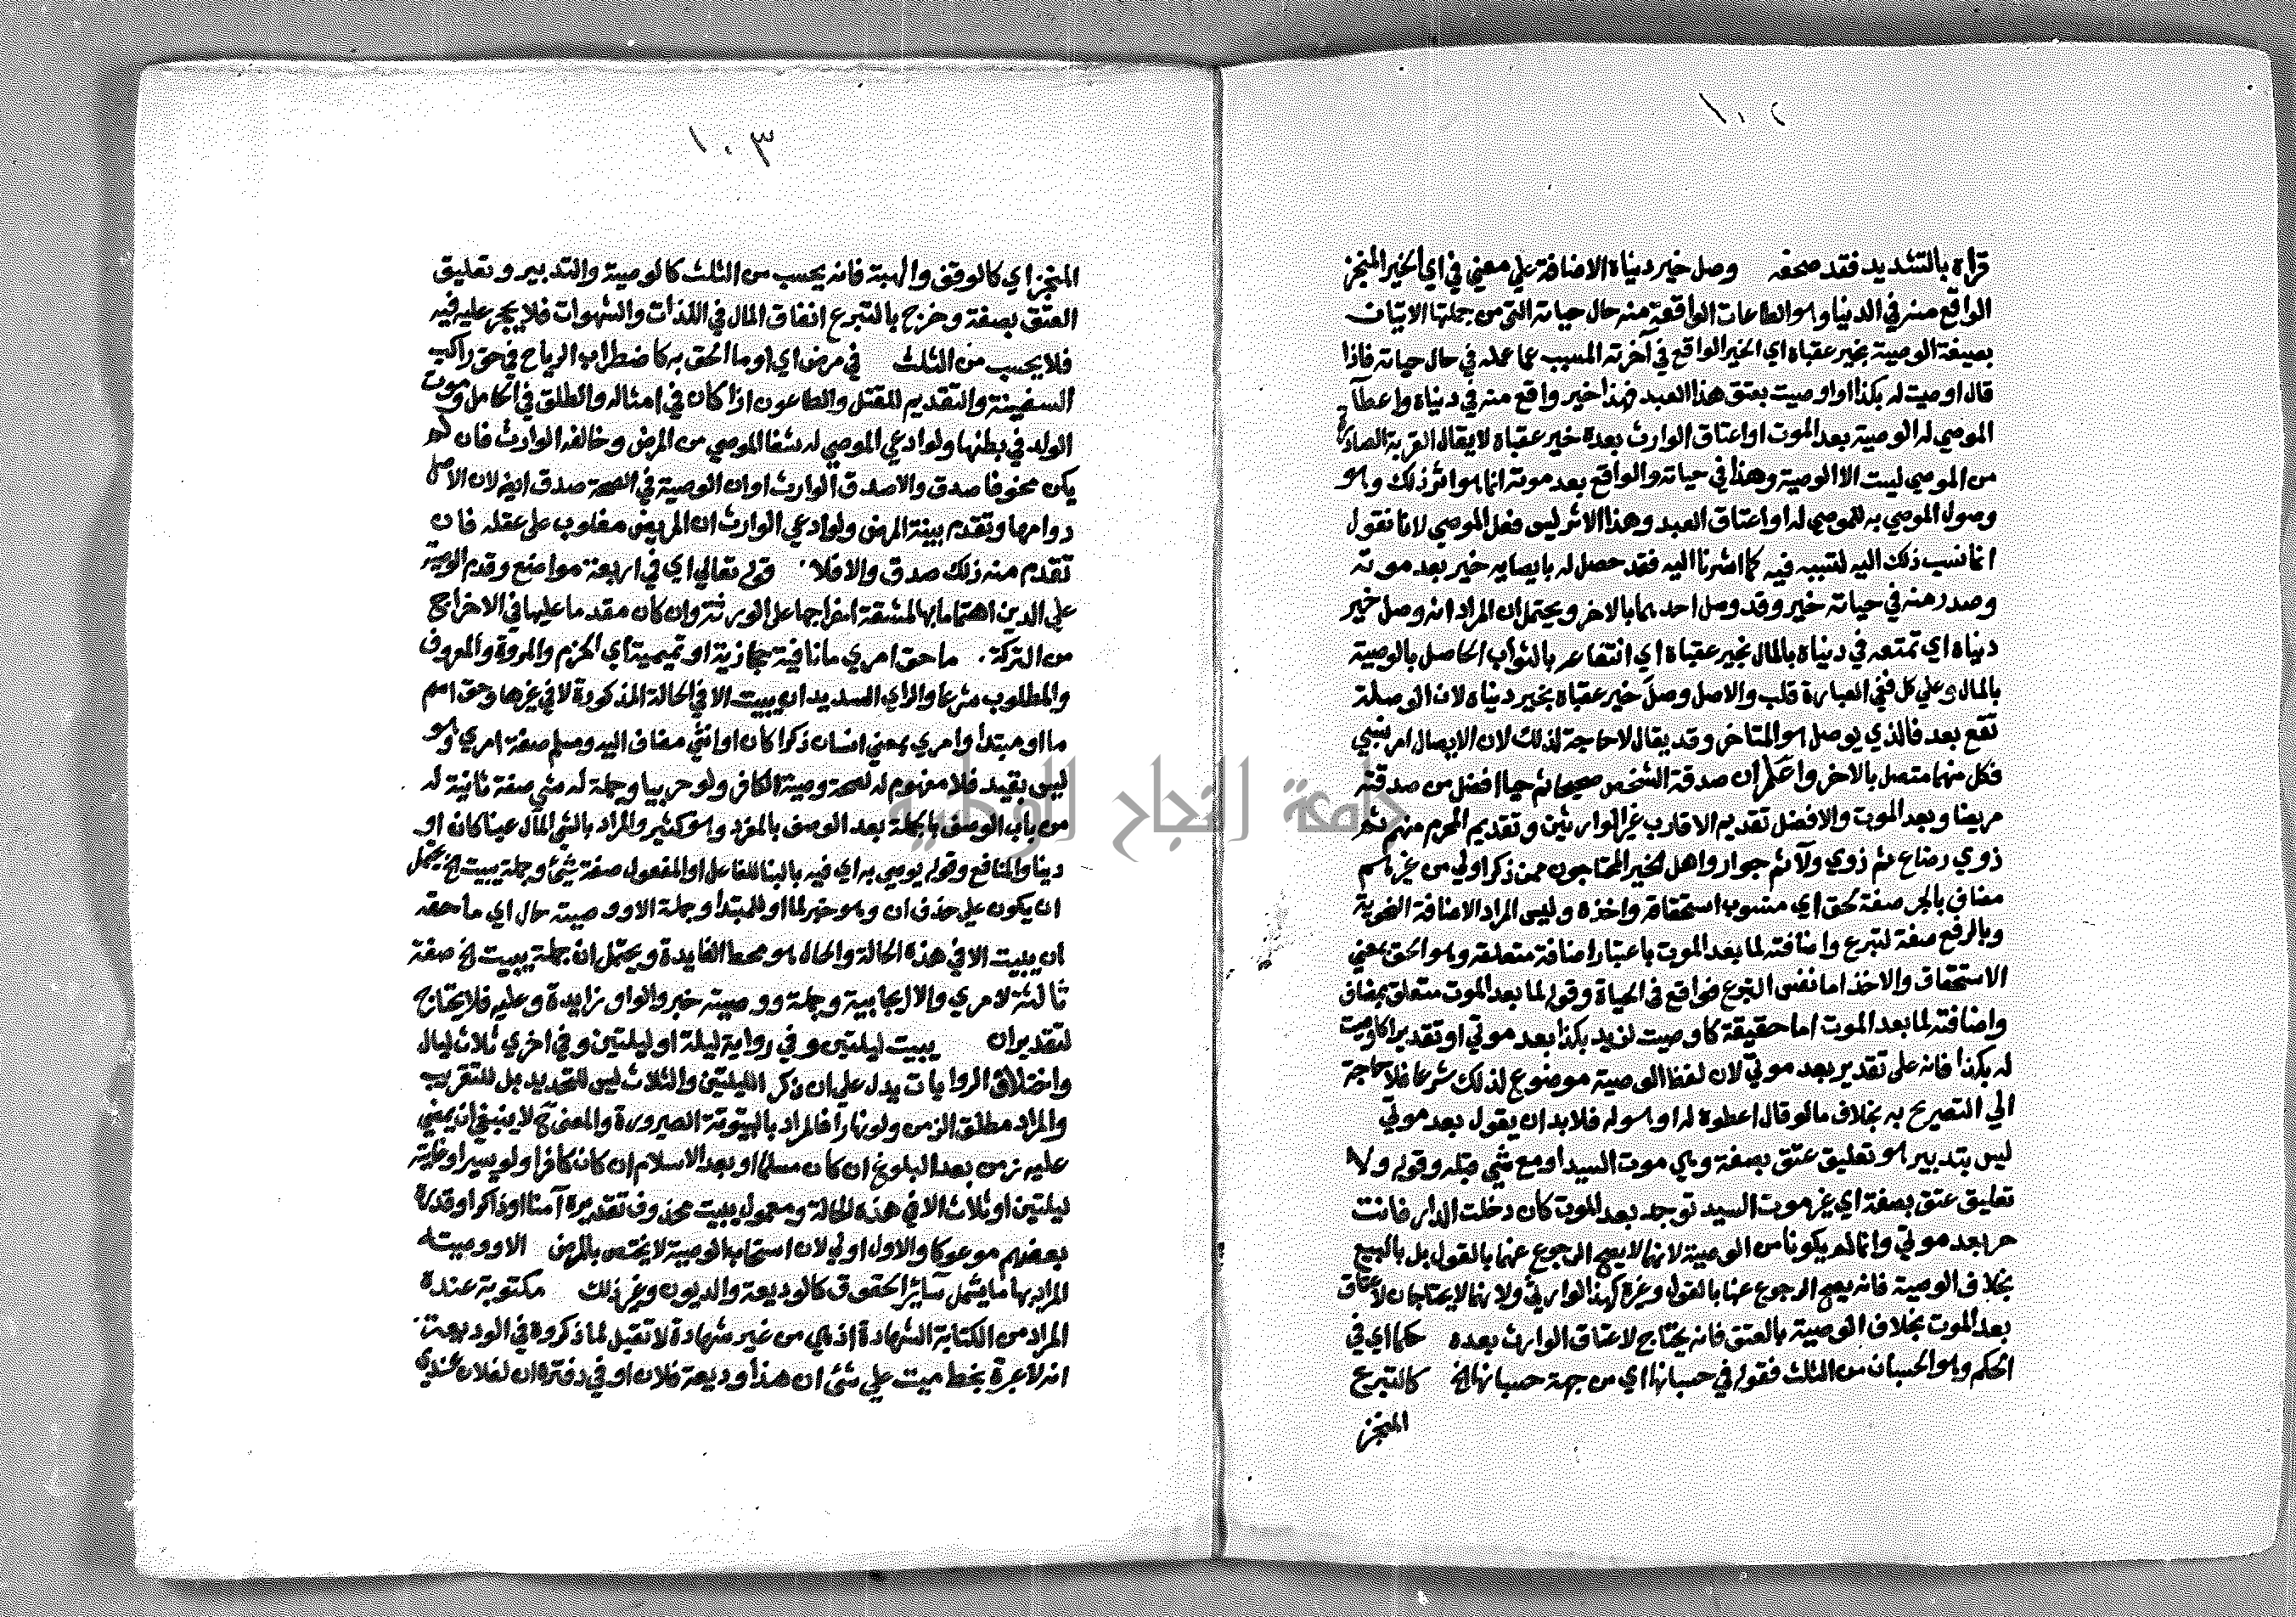 ١٠٢
قراه بالتشديد فقد صحفه وصل خير دنياه الاضافة علي معني في اي الخير المنجز
الواقع منه في الدنيا وهو الطاعات الواقعة منه حال حياته التي من جملتها الاتيان
بصيغة الوصية بخير عقباه اي الخير الواقع في آخرته المسبب عما عمله في حال حياته فاذا
قال اوصيت له بكذا او اوصيت بعتق هذا العبد فهذا خير واقع منه في دنياه واعطآ
الموصي له الوصية بعد الموت او اعتاق الوارث بعده خير عقباه لا يقال القربة الصادرة
من الموصي ليست الا الوصية وهذا في حياته والواقع بعد موته انما هو اثر ذلك وهو
وصول الموصي به للموصي له او اعتاق العبد وهذا الاثر ليس فعل الموصي لانا نقول
انما نسب ذلك اليه لتسببه فيه كما اشرنا اليه فقد حصل له بايصايه خير بعد موته
وصدر منه في حياته خير وقد وصل احدهما بالاخر ويحتمل ان المراد انه وصل خير
دنياه اي تمتعه في دنياه بالمال بخير عقباه اي انتفاعه بالثواب الحاصل بالوصية
بالمال وعلي كل ففي العبارة قلب والاصل وصل خير عقباه بخير دنياه لان الوصلة
تقع بعد فالذي يوصل هو المتاخر وقد يقال لا حاجة لذلك لان الايصال امر نسبي
فكل منهما متصل بالاخر واعلم ان صدقة الشخص صحيحا ثم حيا افضل من صدقته
مريضا وبعد الموت والافضل تقديم الاقارب غير الوارثين وتقديم المحرم منهم ثم
ذوي رضاع ثم ذوي ولآ ثم جوار واهل الخير المحتاجون ممن ذكر اولي من غيرهم
مضاف بالجر صفة لحق اي منسوب استحقاقه واخذه وليس المراد الاضافة النحوية
وبالرفع صفة لتبرع واضافته لما بعد الموت باعتبار اضافة متعلقه وهو الحق بمعني
الاستحقاق والاخذ اما نفس التبرع فواقع في الحياة وقوله لما بعد الموت متعلق بمضاف
واضافته لما بعد الموت اما حقيقة كاوصيت لزيد بكذا بعد موتي او تقديرا كاوصيت
له بكذا فانه علي تقدير بعد موتي لان لفظ الوصية موضوع لذلك شرعا فلا حاجة
الي التصريح به بخلاف ما لو قال اعطوه له او هو له فلا بد ان يقول بعد موتي
ليس بتدبير هو تعليق عتق بصفة وهي موت السيد او مع شي قبله وقوله ولا
تعليق عتق بصفة اي غير موت السيد توجد بعد الموت كان دخلت الدار فانت
حر بعد موتي وانما لم يكونا من الوصية لانهما لا يصح الرجوع عنهما بالقول بل بالبيع
بخلاف الوصية فانه يصح الرجوع عنها بالقول وغيره كهذا لوارثي ولانهما لا يحتاجان لاعتاق
بعد الموت بخلاف الوصية بالعتق فانه يحتاج لاعتاق الوارث بعده حكما اي في
الحكم وهو الحسبان من الثلث فقوله في حسبانها اي من جهة حسبانها الخ كالتبرع
المنجز
١٠٣
المنجز اي كالوقف والهبة فانه يحسب من الثلث كالوصية والتدبير وتعليق
العتق بصفة وخرج بالتبرع انفاق المال في اللذات والشهوات فلا يحجر عليه فيه
فلا يحسب من الثلث في مرض اي او ما الحق به كاضطراب الرياح في حق راكب
السفينة والتقديم للقتل والطاعون اذا كان في امثاله والطلق في الحامل وموت
الولد في بطنها ولو ادعي الموصي له شفا الموصي من المرض وخالفه الوارث فان لم
يكن مخوفا صدق والا صدق الوارث او ان الوصية في الصحة صدق ايضا لان الاصل
دوامها وتقدم بينة المرض ولو ادعي الوارث ان المريض مغلوب علي عقله فان
تقدم منه ذلك صدق والا فلا قوله تعالي اي في اربعة مواضع وقدم الوصية
علي الدين اهتماما بها لمشقة اخراجها علي الورثة وان كان مقدما عليها في الاخراج
من التركة ما حق امري ما نافية حجازية او تميمية اي الحزم والمروة والمعروف
والمطلوب شرعا والراي السديد ان يبيت الا في الحالة المذكورة لا في غيرها وحق اسم
ما او مبتدا وامري بمعني انسان ذكرا كان او انثي مضاف اليه ومسلم صفة امري وهو
ليس بقيد فلا مفهوم له لصحة وصية الكافر ولو حربيا وجملة له شي صفة ثانية له
من باب الوصف بالجملة بعد الوصف بالمفرد وهو كثير والمراد بالشي المال عينا كان او
دينا والمنافع وقوله يوصي به اي فيه بالبنا للفاعل او المفعول صفة شيئ وجملة يبيت الخ يحتمل
ان يكون علي حذف ان وهو خبر لما او للمبتدا وجملة الا ووصيته حال اي ما حقه
ان يبيت الا في هذه الحالة والحال هو محط الفايدة ويحتمل ان جملة يبيت الخ صفة
ثالثة لامري والا ايجابية وجملة ووصيته خبر والواو زايدة وعليه فلا يحتاج
لتقدير ان يبيت ليلتين وفي رواية ليلة او ليلتين وفي اخري ثلاث ليال
واختلاف الروايات يدل علي ان ذكر الليلتين والثلاث ليس للتحديد بل للتقريب
والمراد مطلق الزمن ولو نهارا فالمراد بالبيتوتة الصيرورة والمعني ح لا ينبغي ان يمضي
عليه زمن بعد البلوغ ان كان مسلما او بعد الاسلام ان كان كافرا ولو يسيرا وغايته
ليلتين او ثلاث الا في هذه الحالة ومعمول يبيت محذوف تقديره آمنا او ذاكرا وقدره
بعضهم موعوكا والاول اولي لان استحباب الوصية لا يختص بالمرض الا ووصيته
المراد بها ما يشمل سآئر الحقوق كالوديعة والديون وغير ذلك مكتوبة عنده
المراد من الكتابة الشهادة اذ هي من غير شهادة لا تقبل لما ذكروه في الوديعة
انه لا عبرة بخط ميت علي شئ ان هذا وديعة فلان او في دفتره ان لفلان عندي